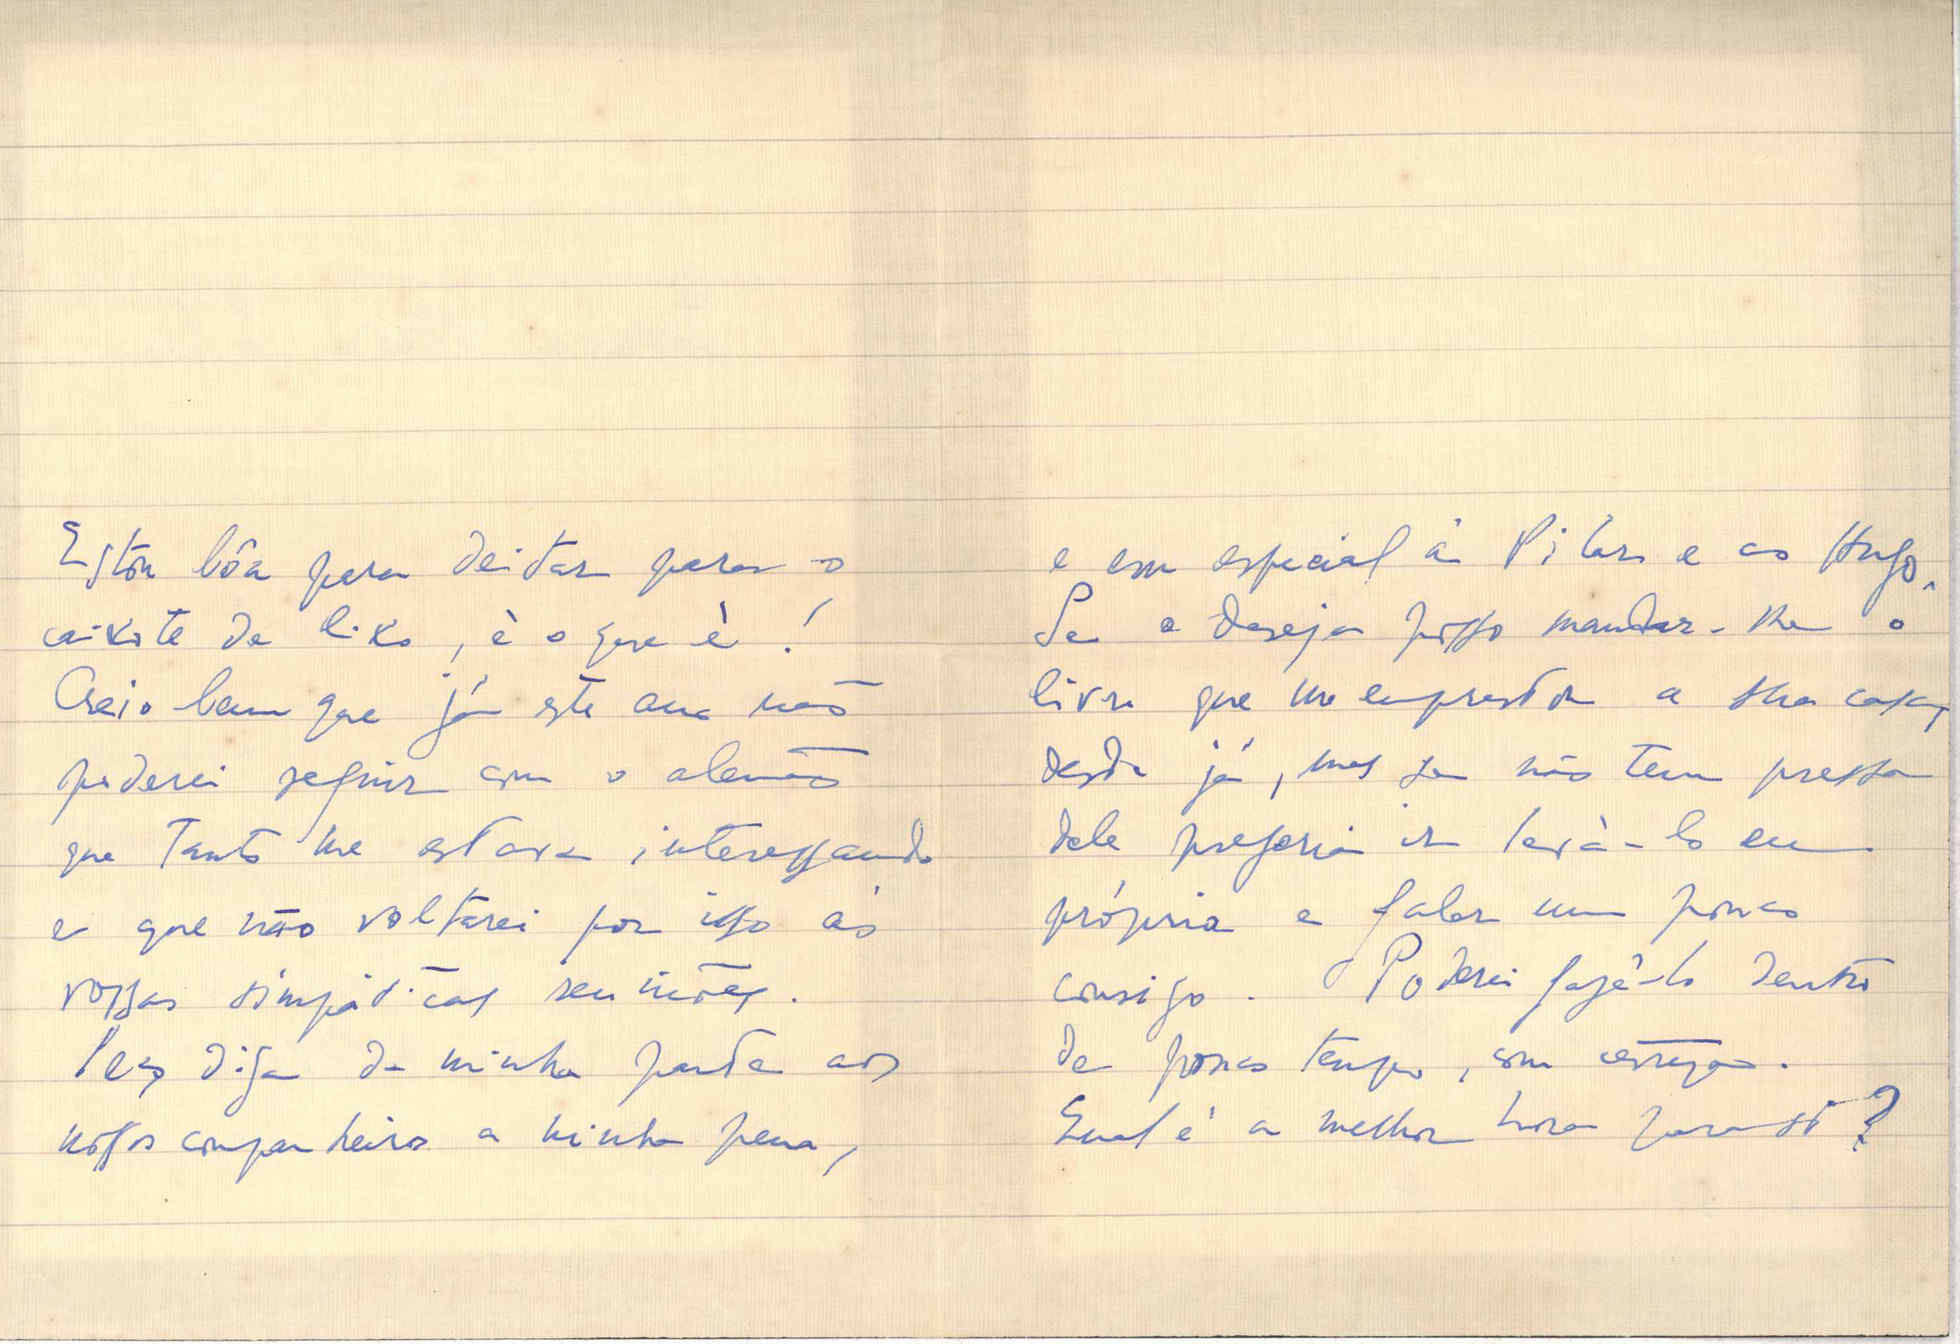 Estou bôa para deitar para o
caixote de lixo, è o que è !
Creio bem que já este ano não
poderei seguir com o alemão
que tanto me estava interessando
e que não voltarei por isso às
vossas simpáticas reuniões.
Peço diga da minha parte aos
nossos companheiros a minha pena,
e em especial à Pilar e ao Hugo.
Se o deseja posso mandar-lhe o
livro que me emprestou a sua casa,
desde já, mas se não tem pressa
dele preferia ir levà-lo eu
própria e falar um pouco
consigo. Poderei fazê-lo dentro
de pouco tempo, com certeza.
Qual é a melhor hora para si ?